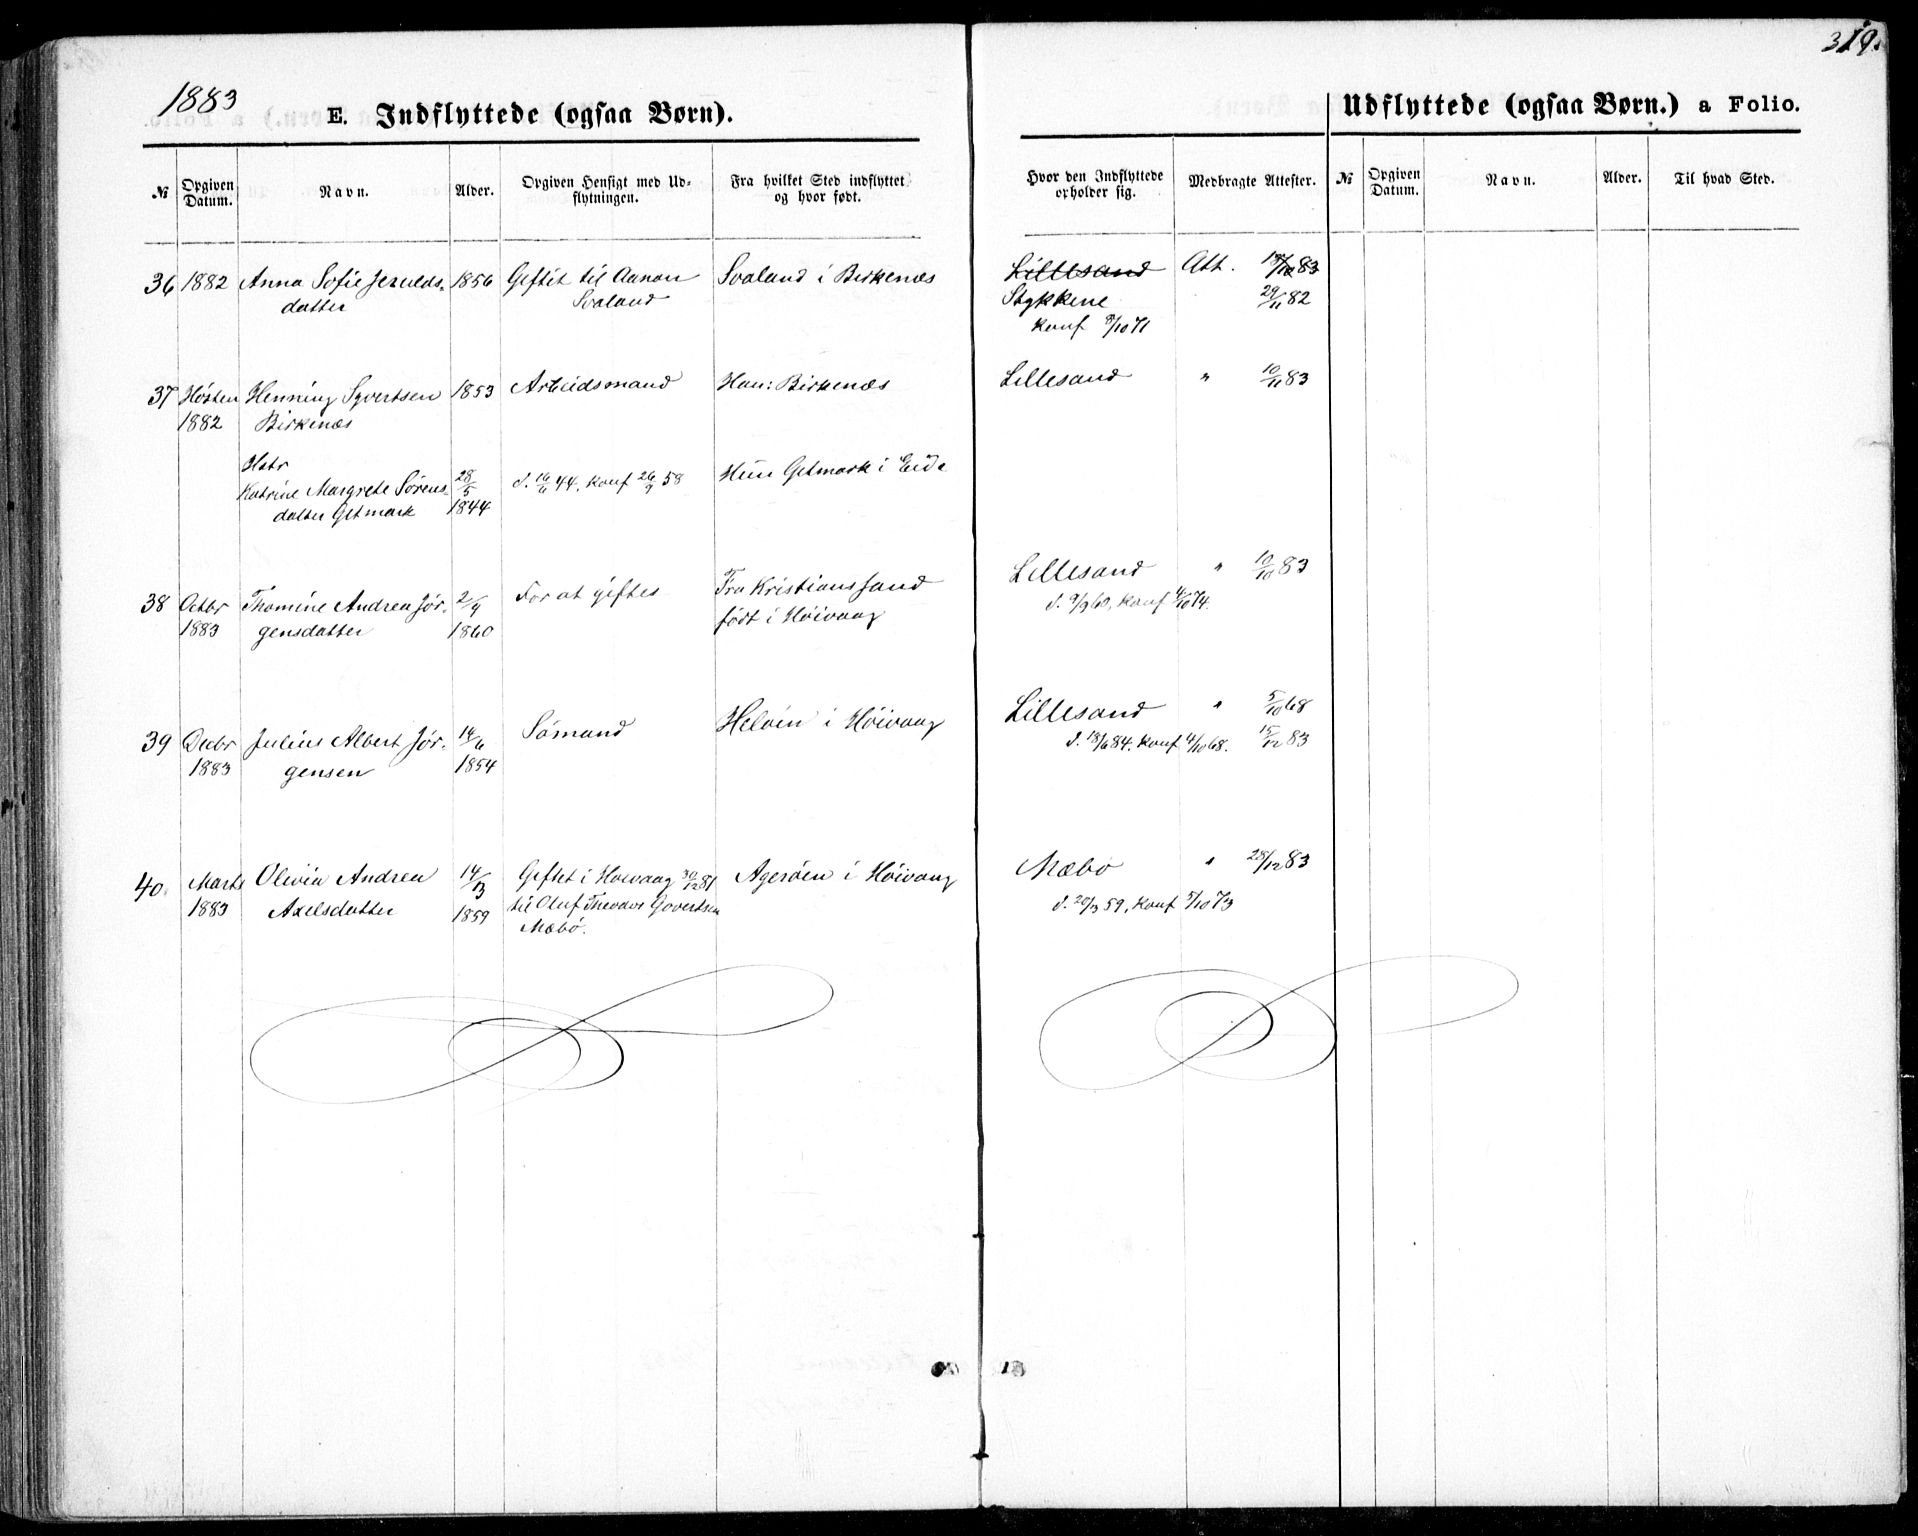 1883
319.
E. Indflyttede (ogsaa Børn).
Udflyttede (ogsaa Børn.) a Folio.
№
Opgiven Datum.
Navn.
Alder.
Opgiven Hensigt med Ud-
flytningen.
Fra hvilket Sted indflyttet
og hvor født.
Hvor den Indflyttede
opholder sig.
Medbragte Attester.
№
Opgiven Datum.
Navn.
Alder.
Til hvad Sted.
36 1882 Anna Sofie Jerulds- 1856 Giftet til Aanon Svaland i Birkenæs Lillesand Att. 83
datter Svaland Stykkene 29/11 82
konf 8/10 71
37 Høsten Henning Syvertsen 1853 Arbeidsmand Han: Birkenæs Lillesand " 10/11 83
1882 Birkenæs
Hstr
Katrine Margrete Sørens- 28/5 d. 16/6 44, konf 26/9 58 Hun Getmark i Eide
datter Getmark 1844
38 Octbr Thomine Andrea Jør- 2/9 For at giftes Fra Kristianssand Lillesand " 10/10 83
1883 gensdatter 1860 født i Høivaag d. 9/9 60, konf 4/10 74.
39 Decbr Julius Albert Jør- 14/6 Sømand Heløen i Høivaag Lillesand " 5/10 68
1883 gensen 1854 d. 18/6 84. konf 4/10 68. 15/12 83
40. Marts Olivia Andrea 14/3 Giftet i Høivaag 30/12 81 Agerøen i Høivaag Mæbø " 28/12 83
1883 Axelsdatter 1859 til Oluf Theodor Govertsen d. 20/3 59, konf 5/10 73
Mæbø.